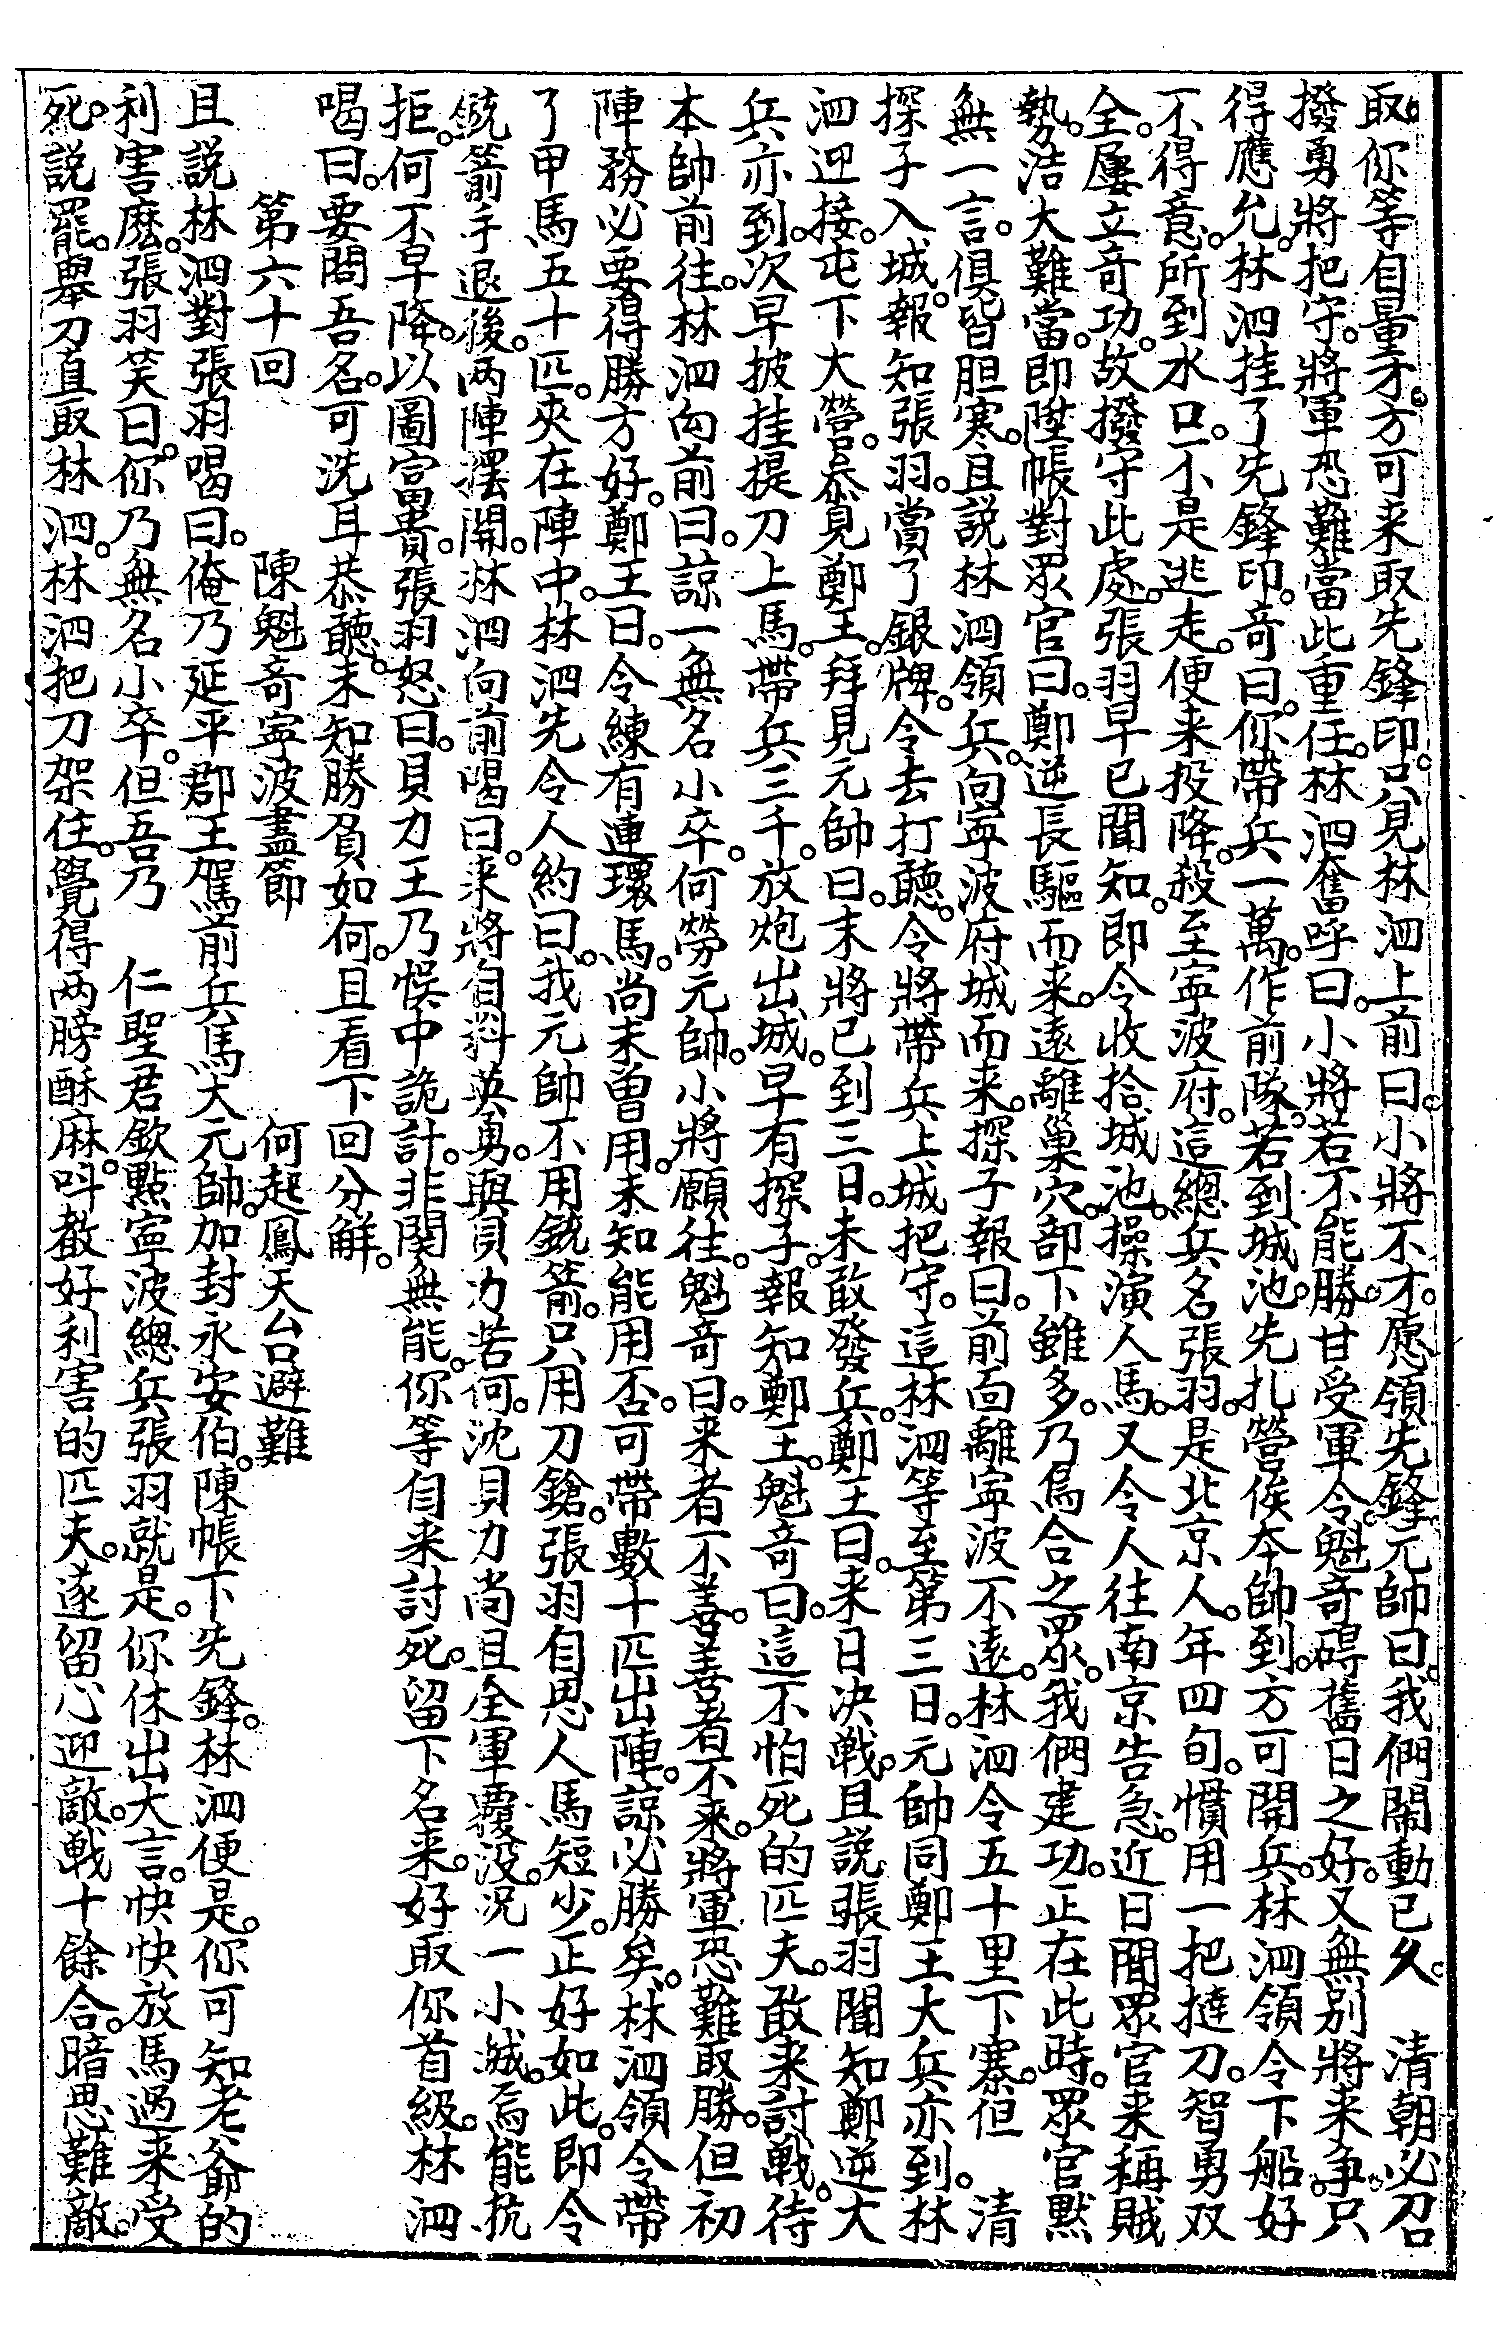 取。你等自量才。方可来取先鋒印。只見林泗上前曰。小將不才。愿領先鋒。元帥曰。我們鬧動已久。 清朝必召
撥勇將把守。將軍恐難當此重任。林泗奮呼曰。小將若不能勝。甘受軍令。魁奇碍舊日之好。又無别將来爭。只
得應允。林泗挂了先鋒印。奇曰。你帶兵一萬。作前隊。若到城池。先扎營俟本帥到。方可開兵。林泗領令下船。好
不得意。所到水口。不是逃走。便来投降。殺至寕波府。這總兵名張羽。是北京人。年四旬。慣用一把撻刀。智勇双
全。屢立奇功。故撥守此處。張羽早已聞知。即令收拾城池。操演人馬。又令人往南京告急。近日聞眾官来稱賊
勢浩大難當。即陞帳對眾官曰。鄭逆長驅而来。遠離巢穴。部下雖多。乃烏合之眾。我們建功。正在此時。眾官默
無一言。俱皆胆寒。且説林泗領兵。向寕波府城而来。探子報曰。前面離寕波不遠。林泗令五十里下寨。但 清
探子入城。報知張羽。賞了銀牌。令去打聽。令將帶兵上城把守。這林泗等至第三日。元帥同鄭王大兵亦到。林
泗迎接。屯下大營。叅見鄭王。拜見元帥曰。末將已到三日。未敢發兵。鄭王曰。来日决戰。且説張羽聞知鄭逆大
兵亦到。次早披挂提刀上馬。帶兵三千。放炮出城。早有探子。報知鄭王。魁奇曰。這不怕死的匹夫。敢来討戰。待
本帥前往。林泗向前曰。諒一無名小卒。何勞元帥。小將願往。魁奇曰。来者不善。善者不来。將軍恐難取勝。但初
陣務必要得勝方好。鄭王曰。令練有連環馬。尚未曾用。未知能用否。可帶數十匹出陣。諒必勝矣。林泗領令帶
了甲馬五十匹。夾在陣中。林泗先令人約曰。我元帥不用銃箭。只用刀鎗。張羽自思人馬短少。正好如此。即令
銃箭手退後。两陣擺開。林泗向前喝曰。来將自料英勇。與貝力若何。沈貝力尚且全軍覆没。况一小城。焉能抗
拒。何不早降。以圖富貴。張羽怒曰。貝力王乃悞中詭計。非関無能。你等自来討死。留下名来。好取你首級。林泗
喝曰。要問吾名。可洗耳恭聽。未知勝負如何。且看下回分解。
第六十回 陳魁奇寕波盡節 何起鳳天台避難
且説林泗對張羽喝曰。俺乃延平郡王駕前兵馬大元帥。加封永安伯。陳帳下先鋒。林泗便是。你可知老爺的
利害麽。張羽笑曰。你乃無名小卒。但吾乃 仁聖君欽點寕波總兵張羽就是。你休出大言。快快放馬過来受
死。説罷。舉刀直取林泗。林泗把刀架住。覺得两膀酥麻。叫教好利害的匹夫。遂留心迎敵。戰十餘合。暗思難敵。